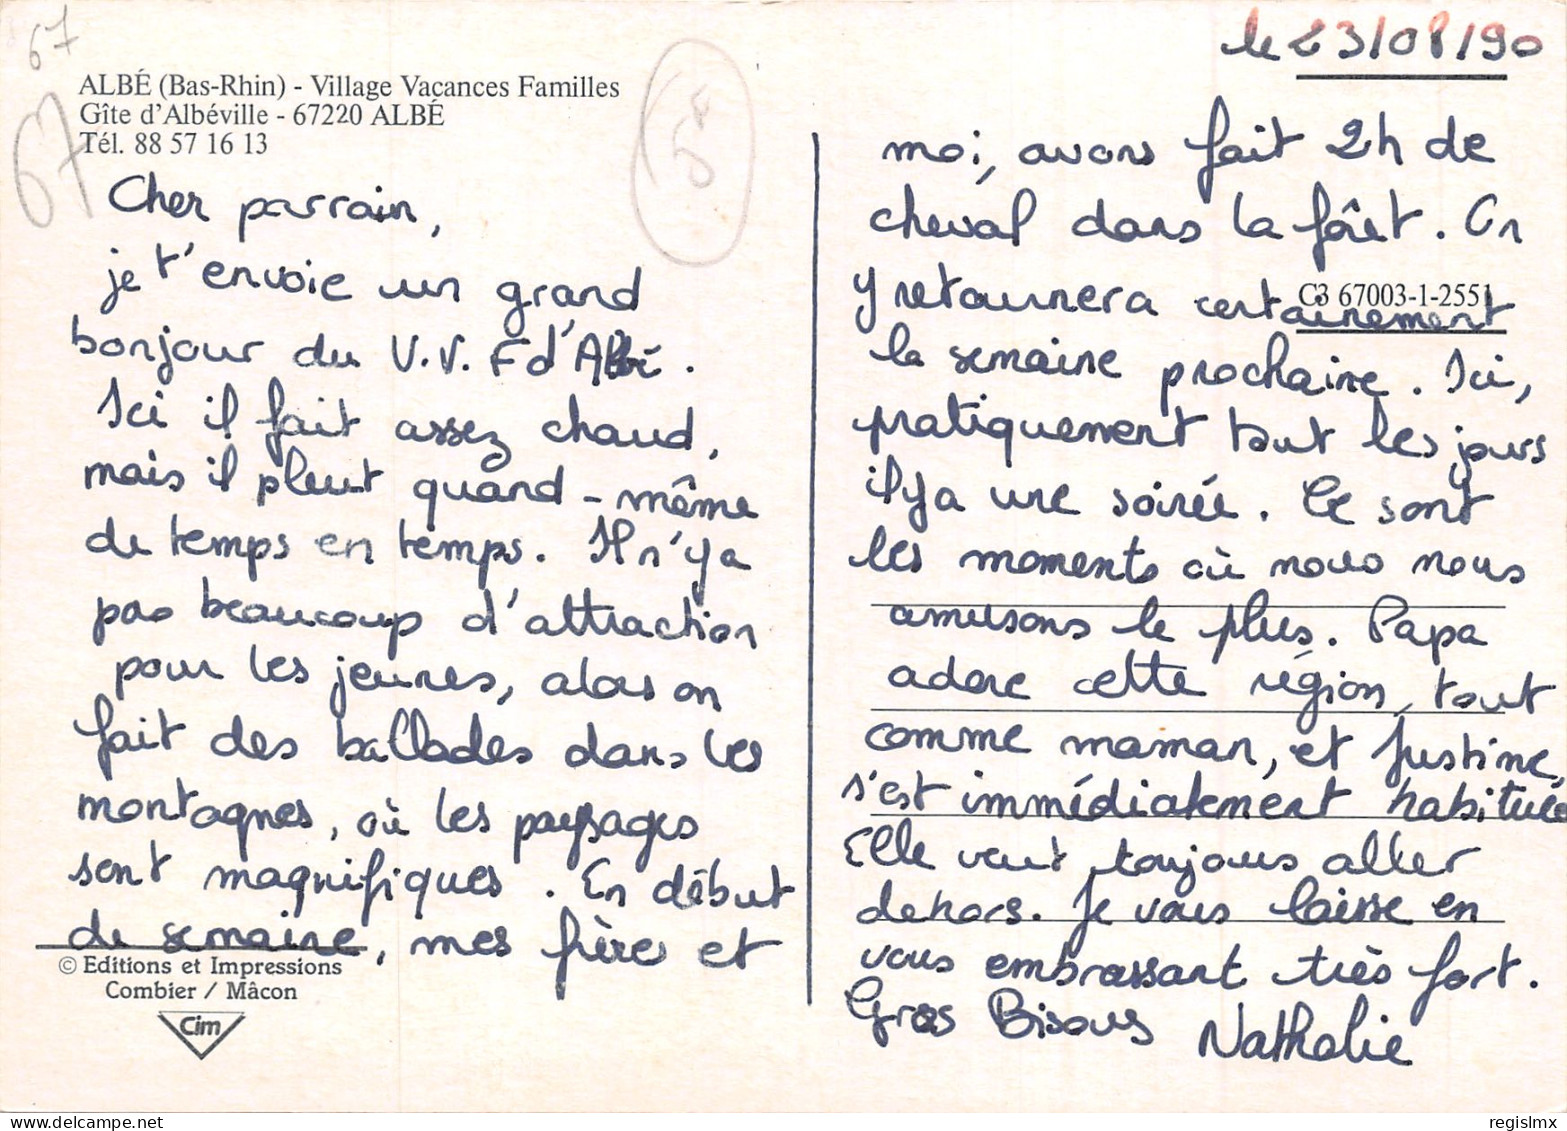 67
67
ALBÉ (Bas-Rhin) - Village Vacances Familles
Gîte d'Albéville - 67220 ALBÉ
Tél. 88 57 16 13
le 23/08/90
Cher parrain,
je t'envoie un grand
bonjour du V.V.F d'Albé.
Ici il fait assez chaud,
mais il pleut quand-même
de temps en temps. Il n'y a
pas beaucoup d'attraction
pour les jeunes, alors on
fait des ballades dans les
montagnes, où les paysages
sont magnifiques. En début
de semaine, mes frères et
© Editions et Impressions
Combier / Mâcon
Cim
moi, avons fait 2h de
cheval dans la fôret. On
y retournera certainement
C3 67003-1-2551
la semaine prochaine. Ici,
pratiquement tout les jours
il y a une soirée. Ce sont
les moments où nous nous
amusons le plus. Papa
adore cette région, tout
comme maman, et Justine,
s'est immédiatement habituée
Elle veut toujours aller
dehors. Je vous laisse en
vous embrassant très fort.
Gros Bisous Nathalie
© regislmx